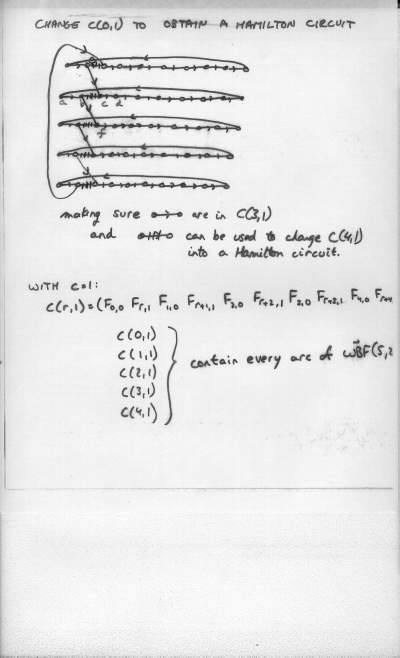 CHANGE C(0,1) TO OBTAIN A HAMILTON CIRCUIT
a b c d
f
making sure are in C(3,1)
and can be used to change C(4,1)
into a Hamilton circuit.
WITH C=1:
C(r,1) = (F0,0 Fr,1 F1,0 Fr+1,1 F2,0 Fr+2,1 F3,0 Fr+3,1 F4,0 Fr+4
C(0,1)
C(1,1)
C(2,1)
C(3,1)
C(4,1)
contain every arc of WBF(5,2